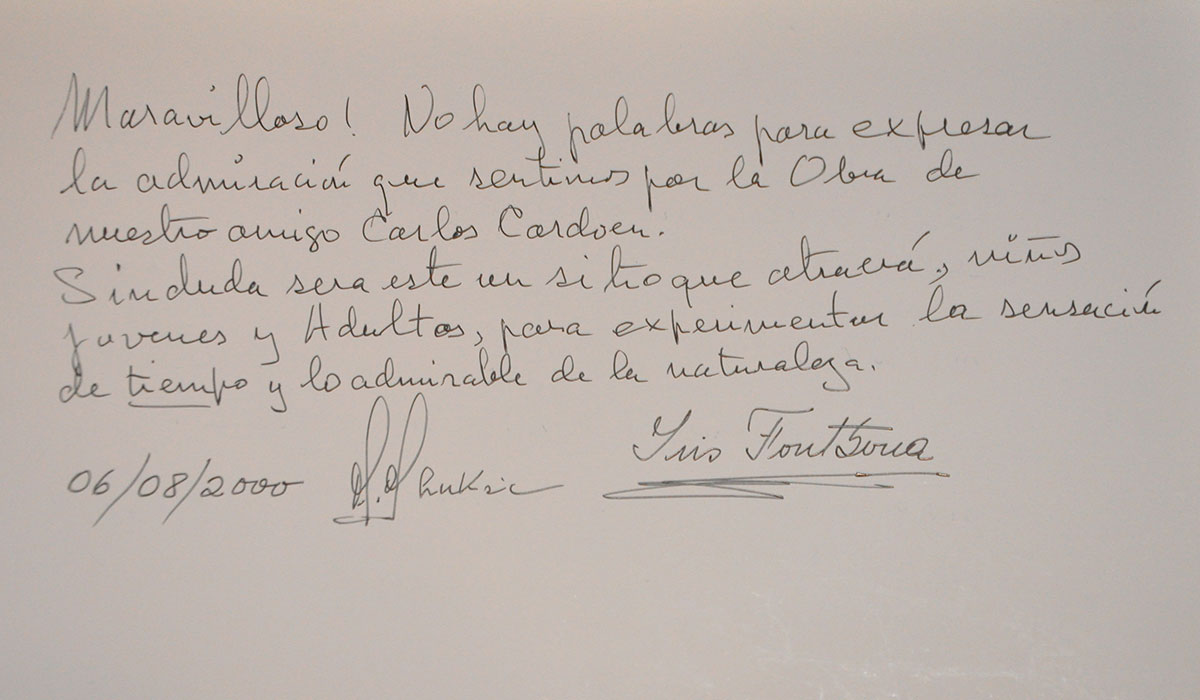 Maravilloso! No hay palabras para expresar
la admiración que sentimos por la Obra de
nuestro amigo Carlos Cardoen.
Sin duda sera este un sitio que atraerá, niños
jovenes y Adultos, para experimentar la sensación
de tiempo y lo admirable de la naturaleza.
06/08/2000 Iris